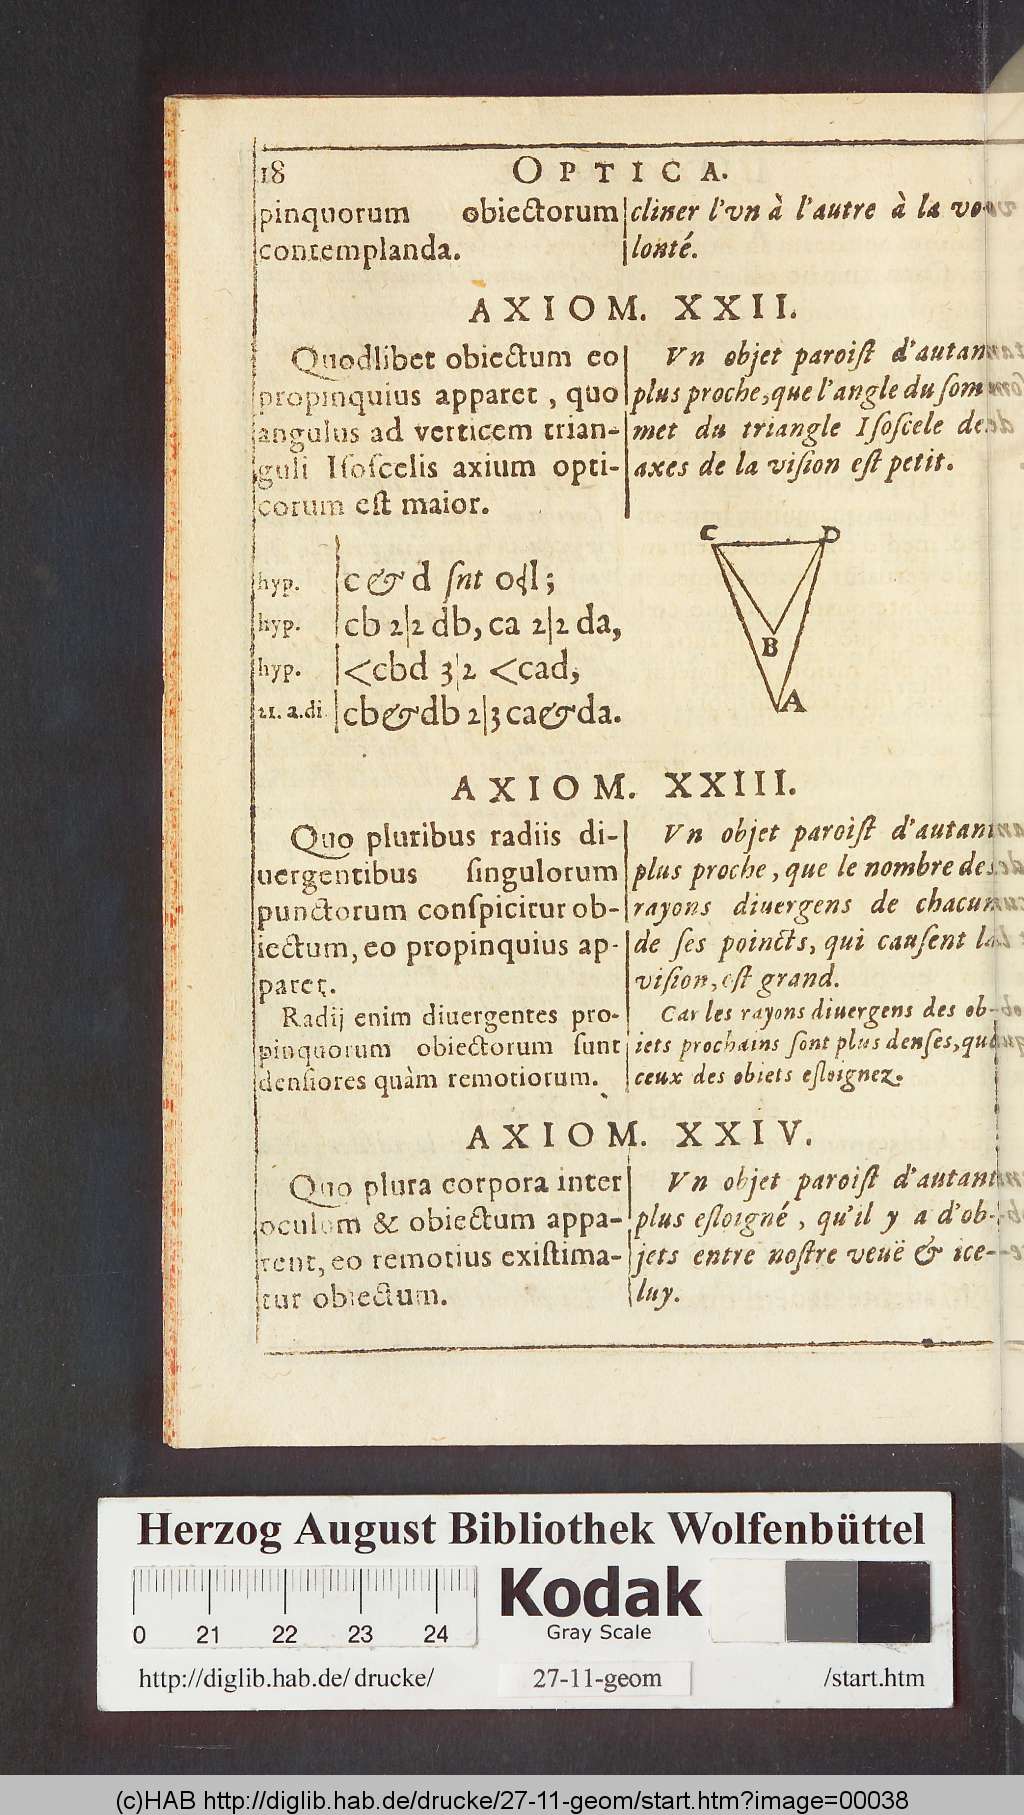 18 OPTICA.
pinquorum obiectorum
contemplanda.
cliner l'vn à l'autre à la vo-
lonté.
AXIOM. XXII.
Quodlibet obiectum eo
propinquius apparet, quo
angulus ad verticem trian-
guli Iſoſcelis axium opti-
corum est maior.
Vn objet paroiſt d'autant
plus proche, que l'angle du ſom
met du triangle Iſoſcele des
axes de la viſion eſt petit.
hyp. c & d ſnt
hyp. cb 2|2 db, ca 2|2 da,
hyp. <cbd 3|2 <cad;
21. a. di cb & db 2|3 ca & da.
C D
B
A
AXIOM. XXIII.
Quo pluribus radiis di-
uergentibus ſingulorum
punctorum conſpicitur ob-
iectum, eo propinquius ap-
paret.
Radij enim diuergentes pro-
pinquorum obiectorum ſunt
denſiores quàm remotiorum.
Vn objet paroiſt d'autant
plus proche, que le nombre des
rayons diuergens de chacun
de ſes poincts, qui cauſent la
viſion, eſt grand.
Car les rayons diuergens des ob-
iets prochains ſont plus denſes, que
ceux des obiets eſloignez.
AXIOM. XXIV.
Quo plura corpora inter
oculum & obiectum appa-
rent, eo remotius exiſtima-
tur obiectum.
Vn objet paroiſt d'autant
plus eſloigné, qu'il y a d'ob-
jets entre noſtre veuë & ice-
luy.
Herzog August Bibliothek Wolfenbüttel
0 21 22 23 24
Kodak
Gray Scale
http://diglib.hab.de/drucke/ 27-11-geom /start.htm
(c)HAB http://diglib.hab.de/drucke/27-11-geom/start.htm?image=00038